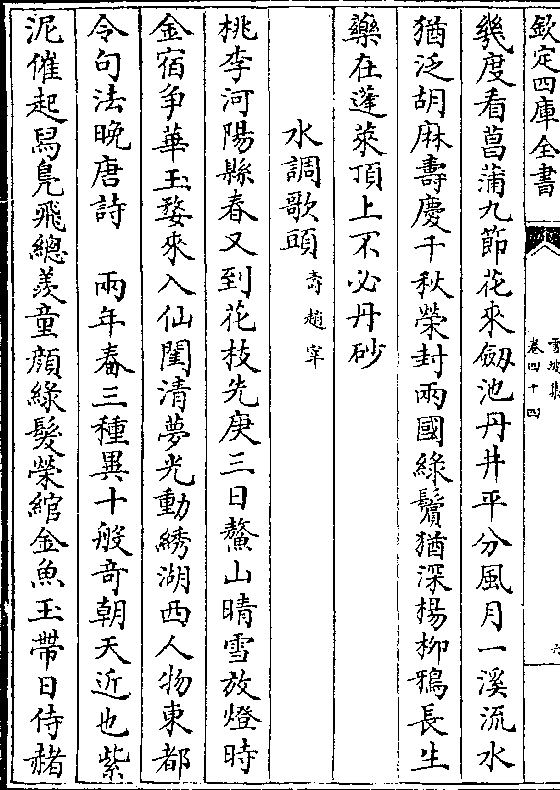 欽定四庫全書
雪坡集
卷四十四
六
幾度看菖蒲九節花來劔池丹井平分風月一溪流水
猶泛胡麻壽慶千秋榮封兩國綠鬢猶深楊柳鴉長生
藥在蓬萊頂上不必丹砂
水調歌頭 壽趙宰
桃李河陽縣春又到花枝先庚三日鰲山晴雪放燈時
金宿爭華玉婺來入仙闈清夢光動綉湖西人物東都
令句法晚唐詩 兩年春三種異十般竒朝天近也紫
泥催起舄鳧飛總羨童顔綠髮榮綰金魚玉帶日侍赭